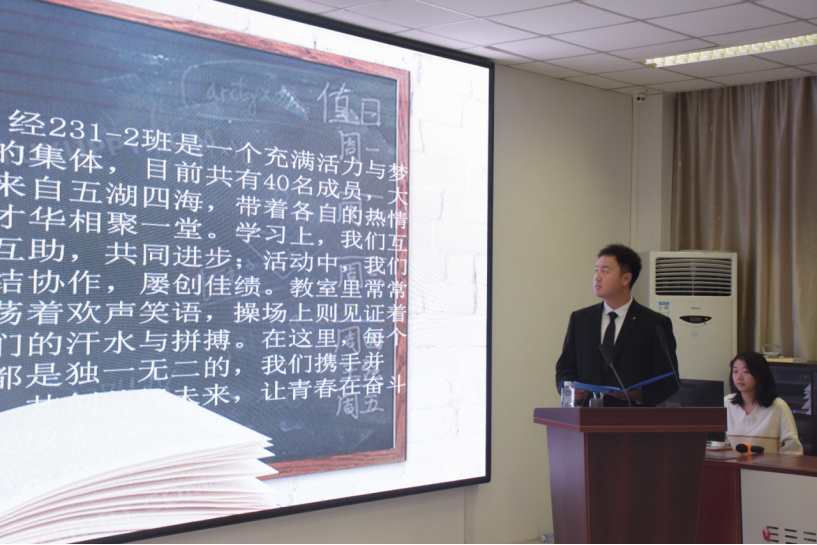 值日
周一
经231-2班是一个充满活力与梦
的集体，目前共有40名成员，大
来自五湖四海，带着各自的热情
才华相聚一堂。学习上，我们互
互助，共同进步；活动中，我们
结协作，屡创佳绩。教室里常常
荡着欢声笑语，操场上则见证着
们的汗水与拼搏。在这里，每个
都是独一无二的，我们携手并
未来，让青春在奋斗
周
周五